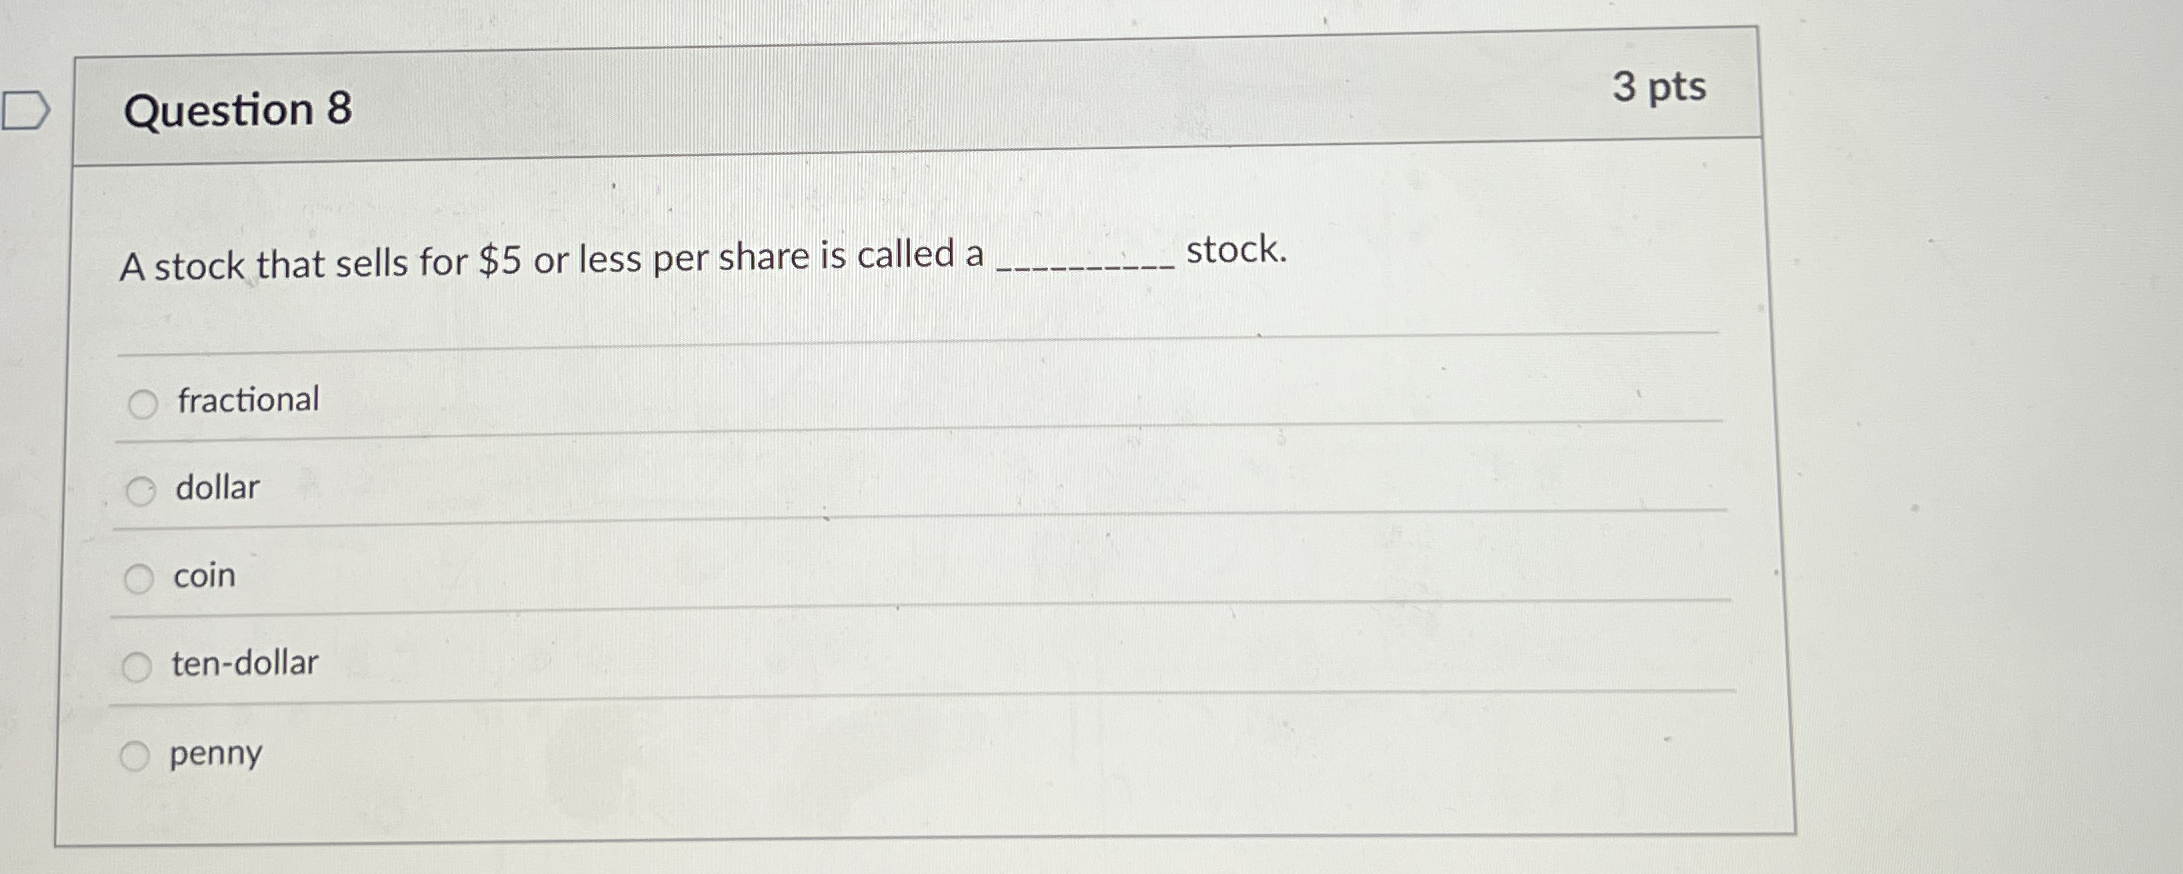 Question 8
3 pts
A stock that sells for $5 or less per share is called a __________ stock.
fractional
dollar
coin
ten-dollar
penny